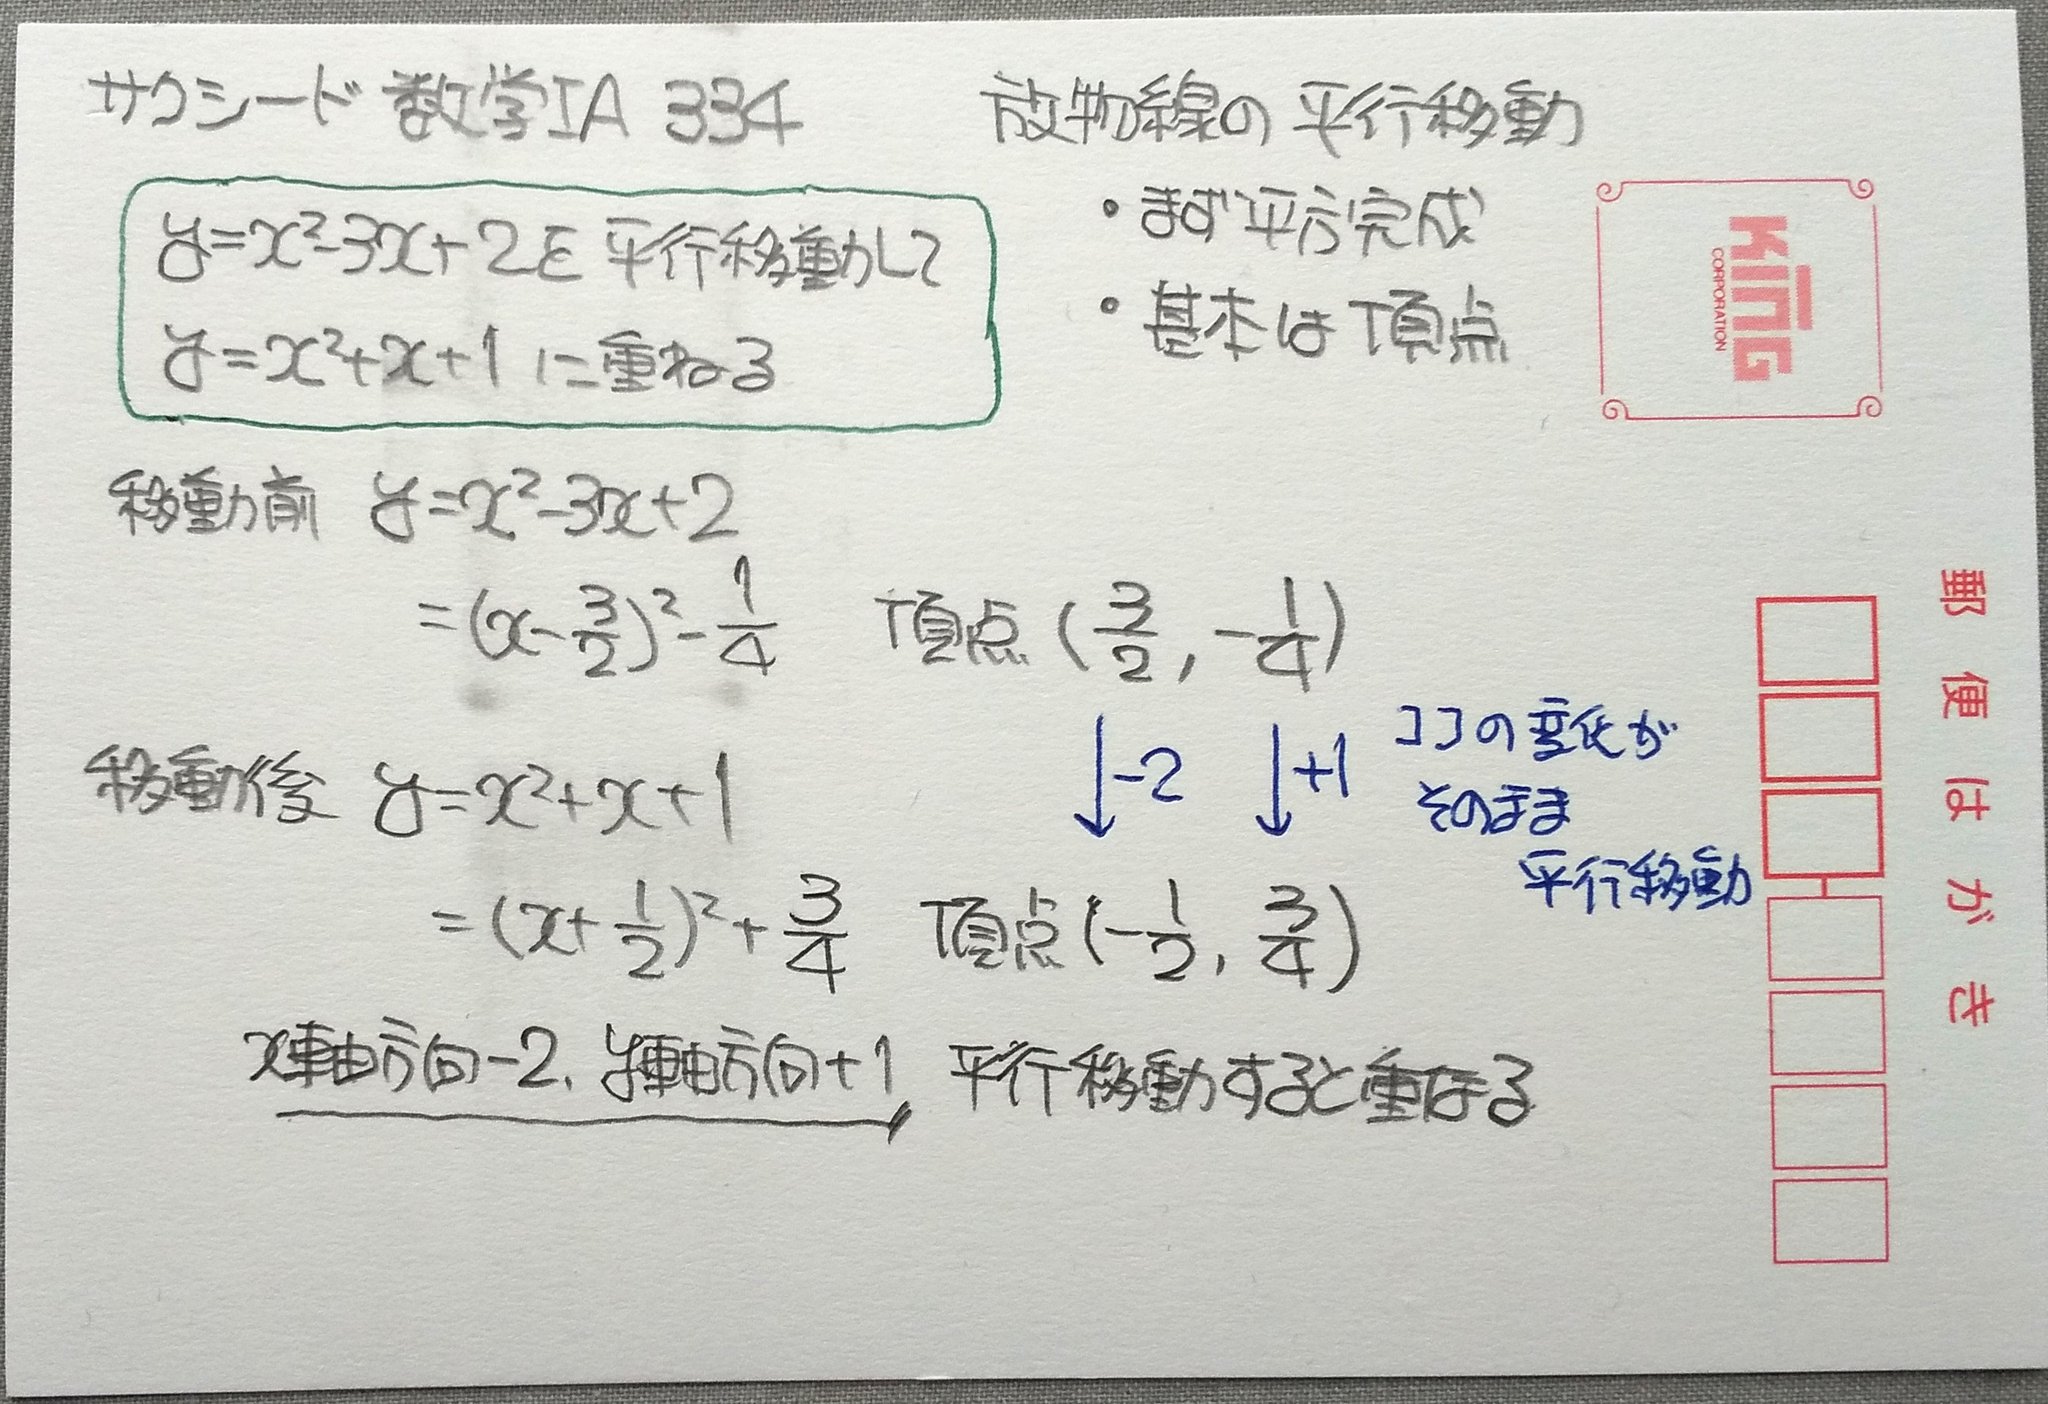 サクシード 数学IA 334
放物線の平行移動
・まず平方完成
・基本は頂点
y=x²-3x+2を平行移動して
y=x²+x+1に重ねる
移動前 y=x²-3x+2
=(x-3/2)²-1/4 頂点(3/2, -1/4)
↓-2 ↓+1 ココの変化が
そのまま
平行移動
移動後 y=x²+x+1
=(x+1/2)²+3/4 頂点(-1/2, 3/4)
x軸方向-2、y軸方向+1 平行移動すると重なる
KING
CORPORATION
郵便はがき